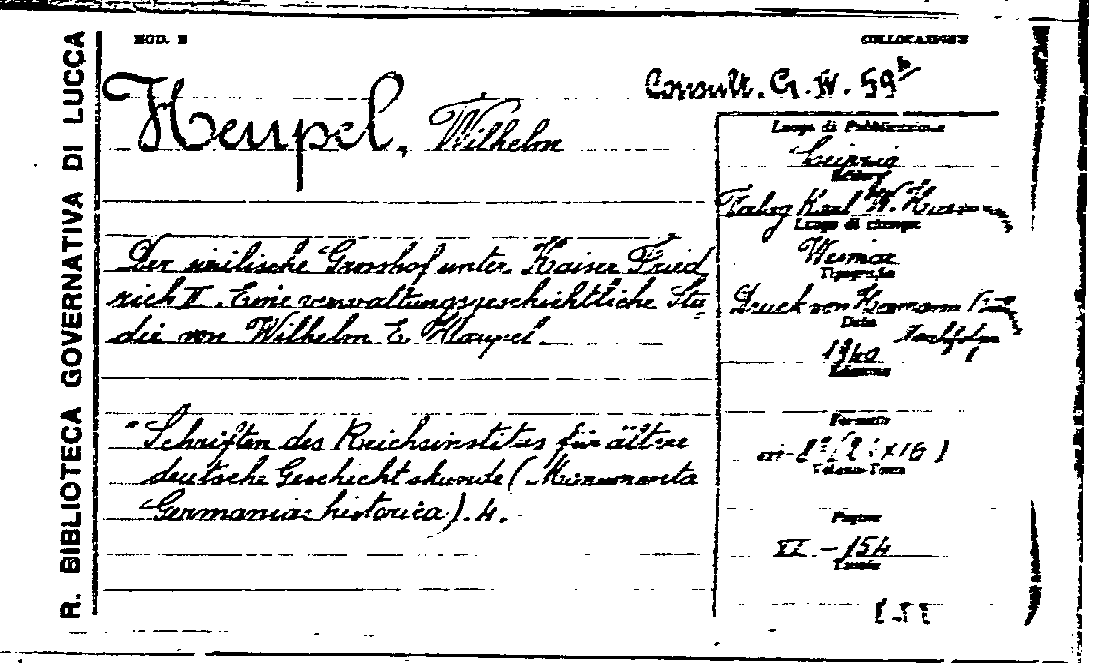 R. BIBLIOTECA GOVERNATIVA DI LUCCA
MOD. E
COLLOCAZIONE
Consult. G. W. 59
Heupel, Wilhelm
Der sizilische Grosshof unter Kaiser Fried
rich II. Eine verwaltungsgeschichtliche Stu-
die von Wilhelm E. Heupel.
"Schriften des Reichsinstitus für ältere
deutsche Geschichtskunde (Monumenta
Germaniae historica). 4.
Luogo di Pubblicazione
Leipzig
Verlag Karl W.
Luogo di stampa
Wismar
Tipografia
Druck von Hermann
Data
1940
Formato
Volume-Tomo
Pagine
VI - 154